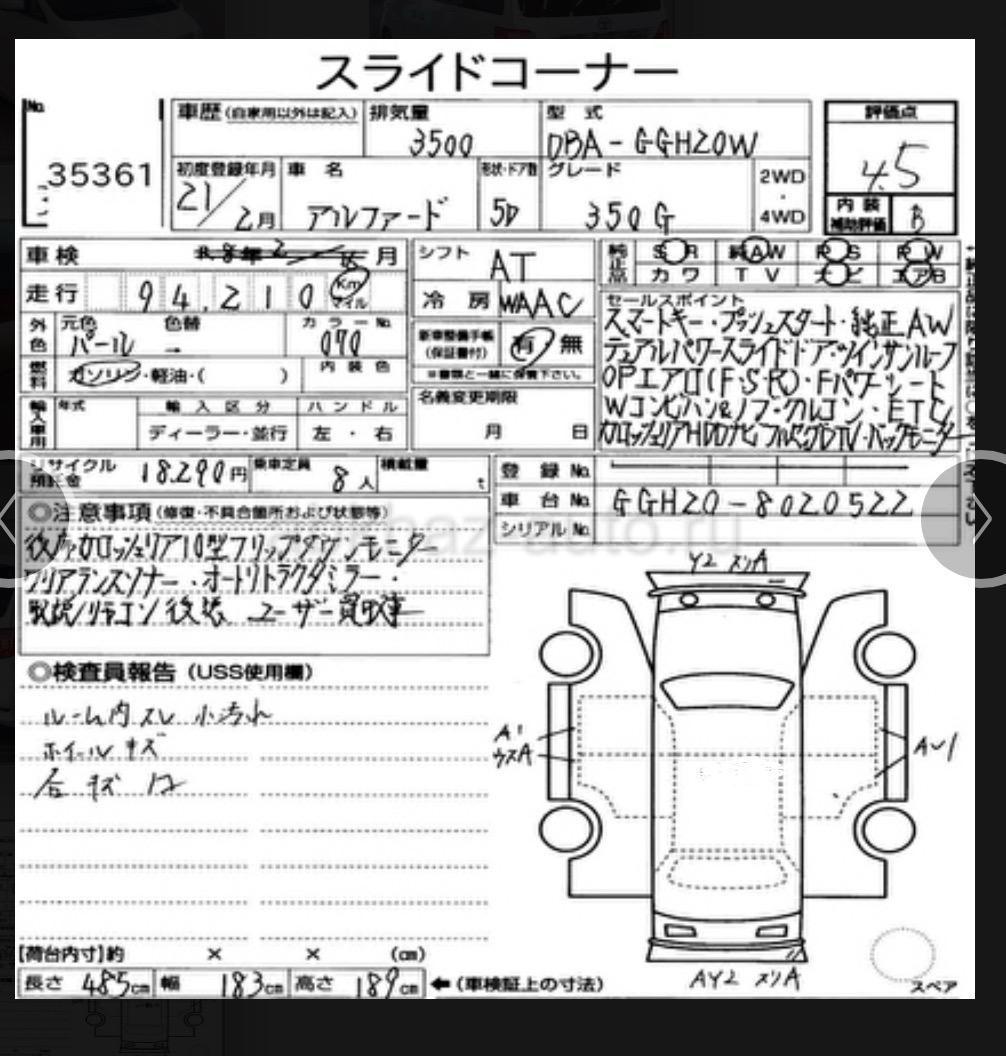 スライドコーナー
No. 35361
車歴(自家用以外は記入) 排気量 3500 型式 DBA-GGH20W 評価点 4.5
初度登録年月 21/2月 車名 アルファード 形状・ドア数 5D グレード 350G 2WD・4WD 内装補助評価 B
車検 月 シフト AT 純正品 SR 純AW PS PW
走行 94,210 Km マイル 冷房 WAAC カワ TV ナビ エアB
外色 元色 パール 色替 カラーNo. 070 新車整備手帳(保証書付) 有 無
燃料 ガソリン・軽油・( ) 内装色 ※書類と一緒に保管下さい。
セールスポイント
スマートキー・プッシュスタート・純正AW
デュアルパワースライドドア・ツインサンルーフ
OPエアロ(F・S・R)・Fパワーシート
Wコンビハン&ノブ・クルコン・ETC
カロッツェリアHDDナビフルセグDTV・バックモニター
輸入車用 年式 輸入区分 ハンドル 名義変更期限
ディーラー・並行 左・右 月 日
リサイクル預託金 18,290円 乗車定員 8人 積載量 t 登録No.
車台No. GGH20-8020522
シリアルNo.
◎注意事項(修復・不具合箇所および状態等)
後席カロッツェリア10型フリップダウンモニター
クリアランスソナー・オートリトラクタミラー・
取説/リモコン後送 ユーザー買取車
◎検査員報告(USS使用欄)
ルーム内スレ 小汚れ
ホイールキズ
Y2 スリA
A1
ウスA
A~1
AY2 スリA
スペア
【荷台内寸】約 × × (cm)
長さ 485cm 幅 183cm 高さ 189cm ←(車検証上の寸法)